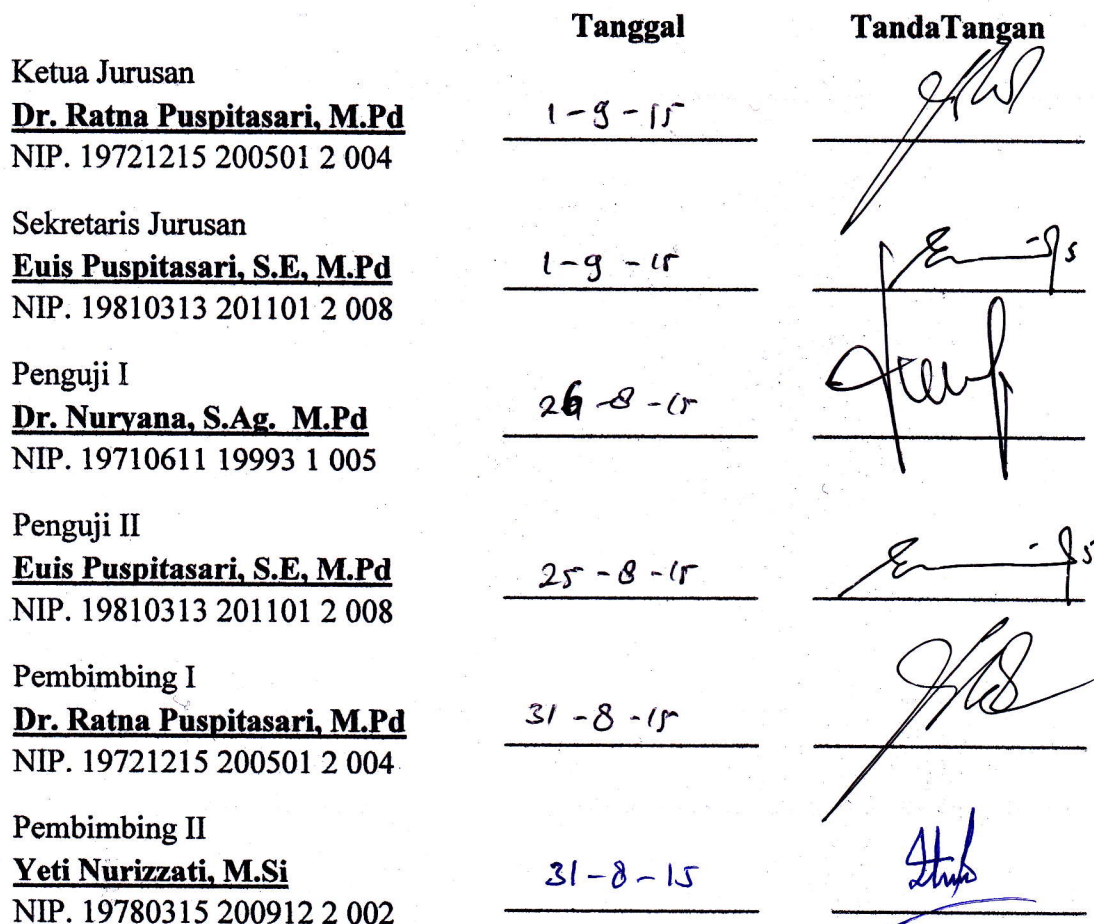 Tanggal TandaTangan
Ketua Jurusan
Dr. Ratna Puspitasari, M.Pd 1-9-15
NIP. 19721215 200501 2 004
Sekretaris Jurusan
Euis Puspitasari, S.E, M.Pd 1-9-15
NIP. 19810313 201101 2 008
Penguji I
Dr. Nuryana, S.Ag. M.Pd 26-8-15
NIP. 19710611 19993 1 005
Penguji II
Euis Puspitasari, S.E, M.Pd 25-8-15
NIP. 19810313 201101 2 008
Pembimbing I
Dr. Ratna Puspitasari, M.Pd 31-8-15
NIP. 19721215 200501 2 004
Pembimbing II
Yeti Nurizzati, M.Si 31-8-15
NIP. 19780315 200912 2 002